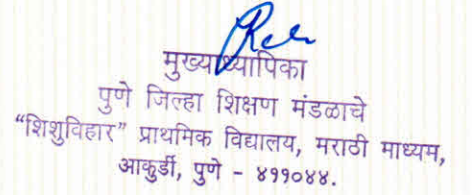 मुख्याध्यापिका
पुणे जिल्हा शिक्षण मंडळाचे
“शिशुविहार” प्राथमिक विद्यालय, मराठी माध्यम,
आकुर्डी, पुणे - ४११०४४.